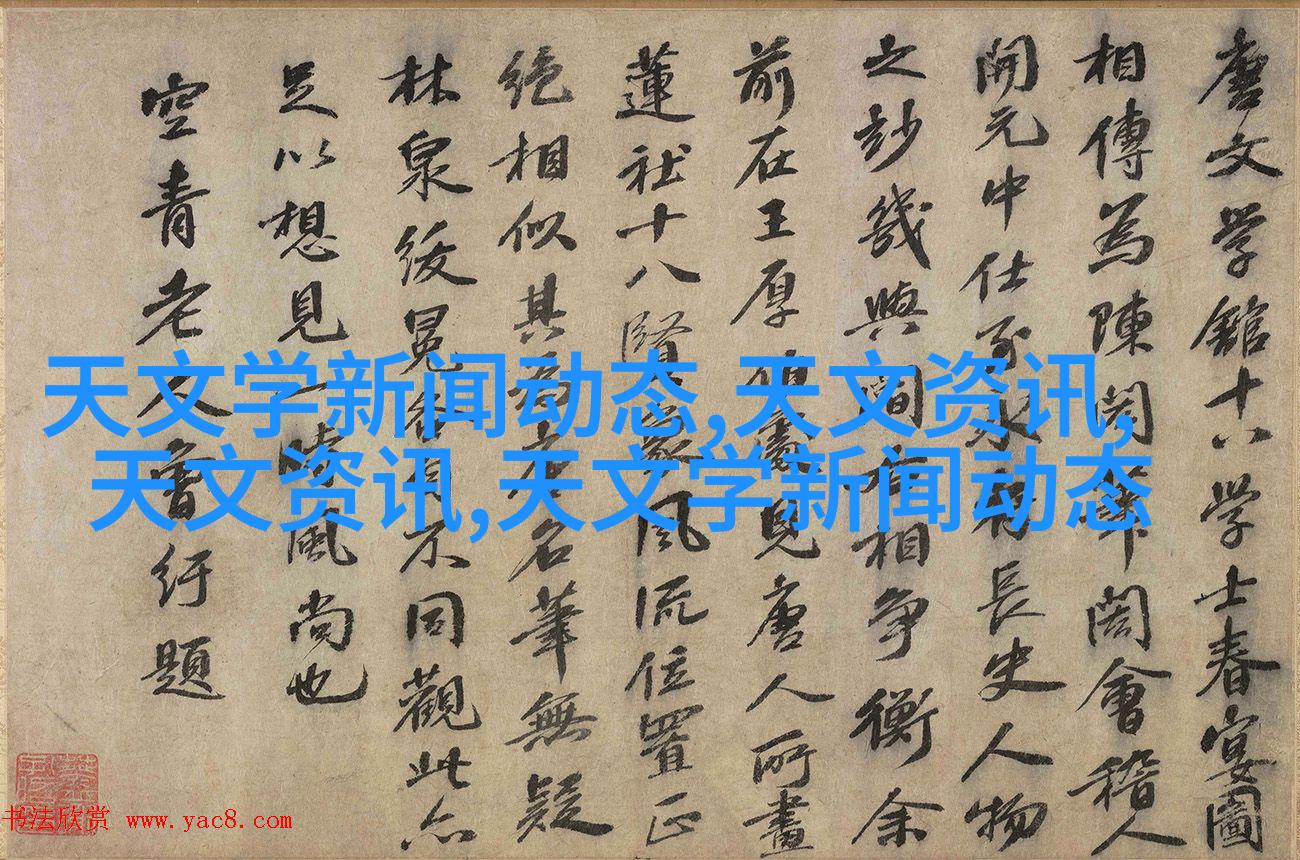 唐文学館十八学士春宴圖
相傳為陳閎筆閎會稽人
開元中仕永長史人物
之妙幾與閻右相爭衡余
前在王厚見唐人所畫
蓮社十八賢風流位置正
绝相似其為名筆無疑
林泉綬冕有不同觀此亦
足以想見一時風尚也
空青老人曾紆題
天文学新闻动态,天文资讯,
天文资讯,天文学新闻动态
书法欣赏 www.yac8.com